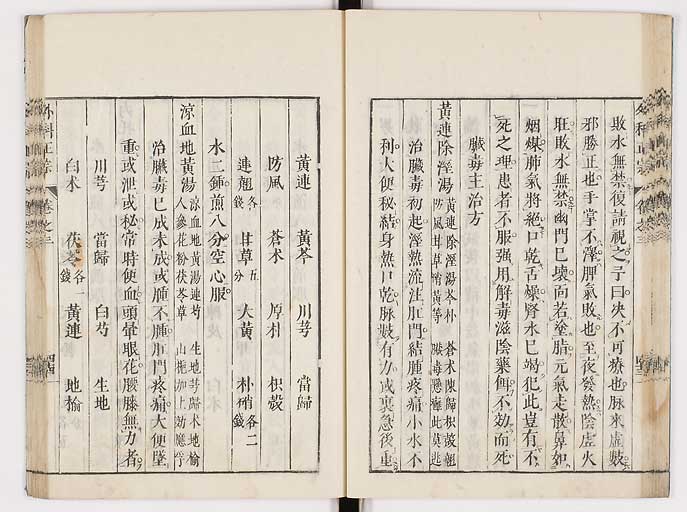 敗水無禁復請視之予曰决不可療也脉來虚數
邪勝正也手掌不滯脾氣敗也至夜發熱陰虚火
旺敗水無禁幽門已壞面若塗脂元氣走散鼻如
烟煤肺氣將絶口乾舌燥腎水已竭犯此豈有不
死之理患者不服强用解毒滋陰藥餌不効而死
臟毒主治方
黃連除溼湯
黃連除溼湯芩朴 蒼术陳歸枳殼翹
防風甘草硝黃等 臟毒懸癰此莫逃
治臟毒初起溼熱流注肛門結腫疼痛小水不
利大便秘結身熱口乾脉數有力或裏急後重
黃連 黃芩 川芎 當歸
防風 蒼术 厚朴 枳殼
連翹各 甘草五分 大黃 朴硝各二錢
水二鍾煎八分空心服
涼血地黃湯
涼血地黃湯連芍 生地芎歸术地榆
人參花粉茯苓草 山梔加上効應乎
治臟毒已成未成或腫不腫肛門疼痛大便墜
重或泄或秘常時便血頭暈眼花腰膝無力者
川芎 當歸 白芍 生地
白术 茯苓各一錢 黃連 地榆
外科正宗 卷之三